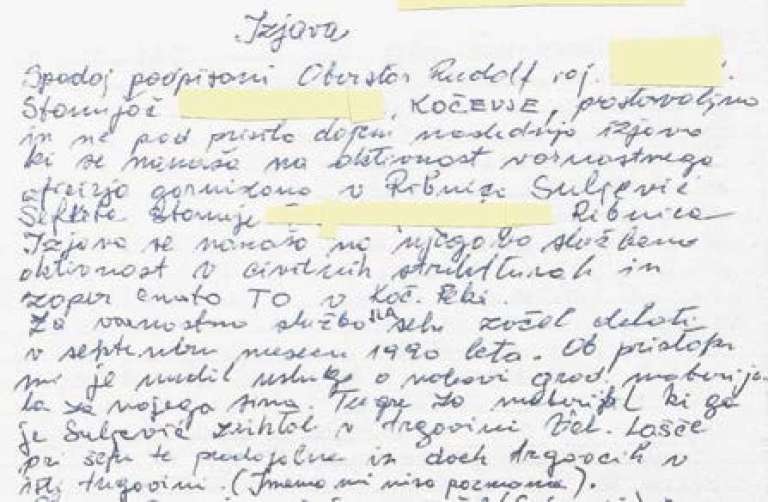 Izjava
Spodaj podpisani Oberstar Rudolf roj.
Stanujoč , KOČEVJE, prostovoljno
in ne pod prisilo dajem naslednjo izjavo
ki se nanaša na aktivnost varnostnega
oficirja garnizona v Ribnici Suljević
Šefketa stanuje Ribnica
Izjava se nanaša na njegovo službeno
aktivnost v civilnih strukturah in
zoper enoto TO v Koč. Reki.
Za varnostno službo JLA sem začel delati
v septembru mesecu 1990 leta. Ob pristopu
mi je nudil usluge o nabavi grad. materija-
la za mojega sina. Tu gre za material ki ga
je Suljević zrihtal v trgovini Vel. Lašče
pri šefu te prodajalne in dveh trgovcih v
isti trgovini. (Imena mi niso poznana).